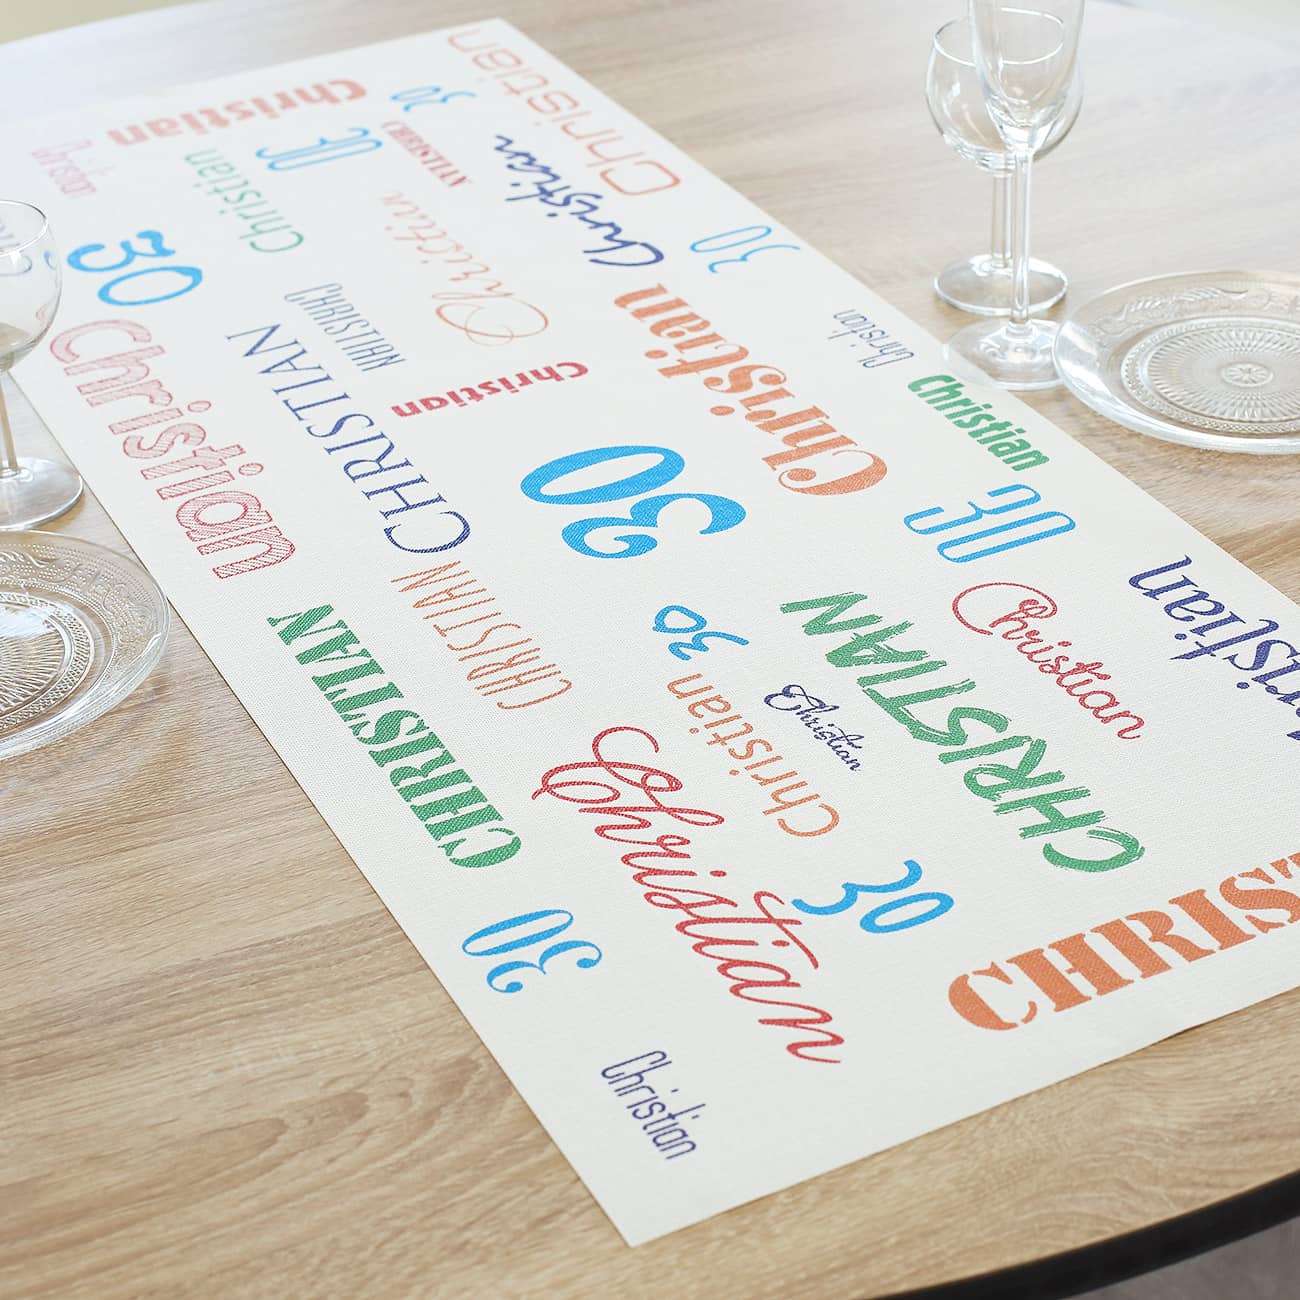 Christian
Christian
30
CHRISTIAN
30
Christian
Christian
Christian
Christian
30
30
Christian
CHRISTIAN
Christian
Christian
CHRISTIAN
Christian
Christian
Christian
30
30
CHRISTIAN
CHRISTIAN
Christian
Christian
30
CHRISTIAN
Christian
Christian
Christian
CHRISTIAN
30
30
Christian
Christian